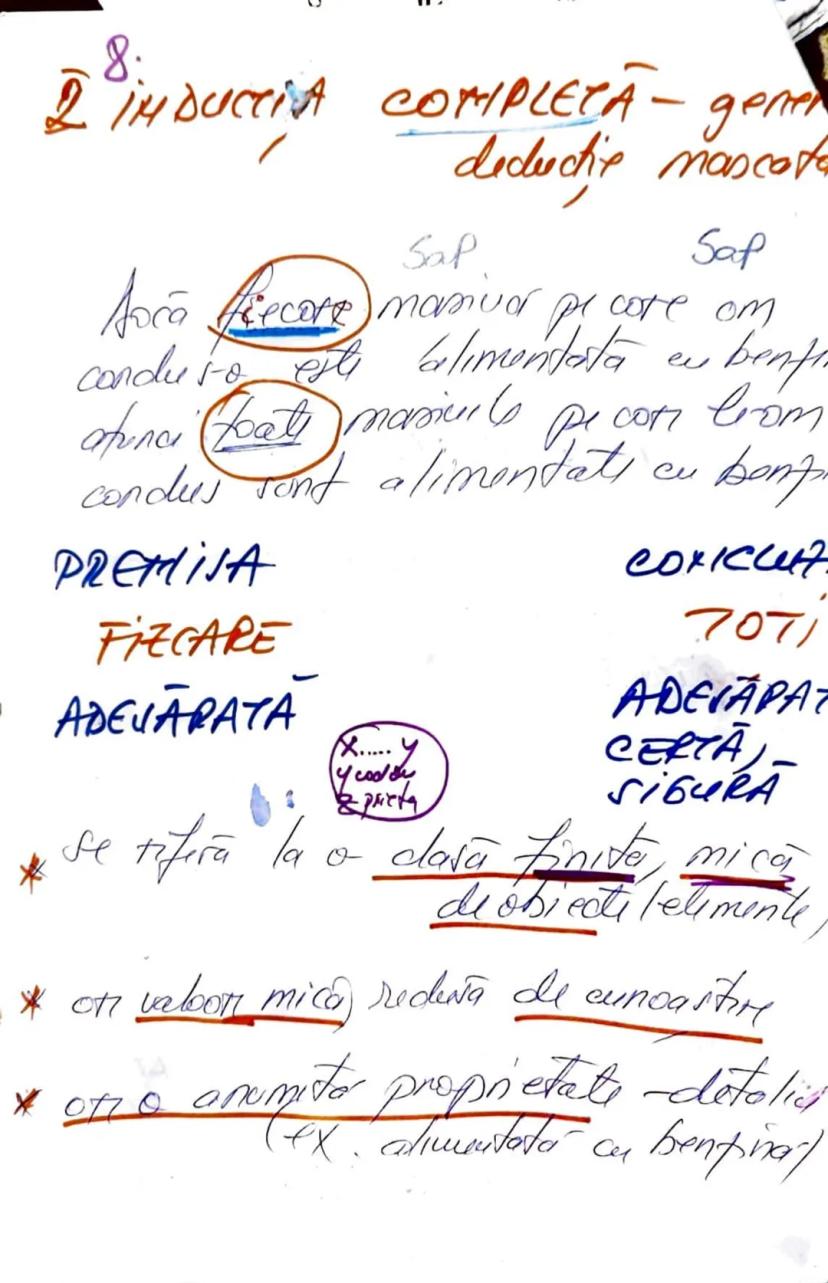 8.
I INDUCȚIA COMPLETĂ – gener
deducție mascată
SaP SaP
Dacă fiecare mașină pe care am
condus-o este alimentată cu benzi
atunci toate mașinile pe care le-am
condus sunt alimentate cu benzi
PREMISA CONCLUZ
FIECARE TOȚI
ADEVĂRATĂ ADEVĂRAT
CERTĂ,
SIGURĂ
x..... y
y
z poartă
* se referă la o clasă finită, mică
de obiecte/elemente,
* are valoare mică, redusă de cunoaștere
* are o anumită proprietate – detaliu
(ex. alimentată cu benzină)